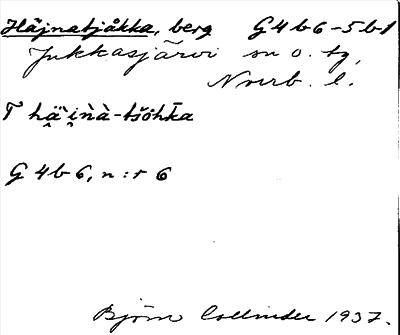 Häjnatjåkka, berg G4b6-5b1
Jukkasjärvi sn o. tg,
Norrb. l.
T hä̀i̯nà-tšòhka
G 4b6, n:r 6
Björn Collinder 1937.